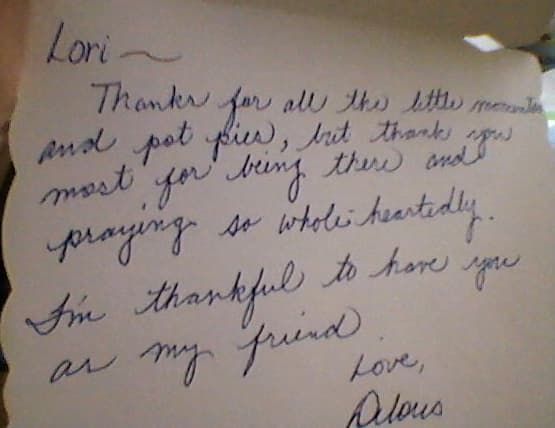 Lori ~
Thanks for all the little momentos
and pot pies, but thank you
most for being there and
praying so whole-heartedly.
I'm thankful to have you
as my friend.
Love,
Delous